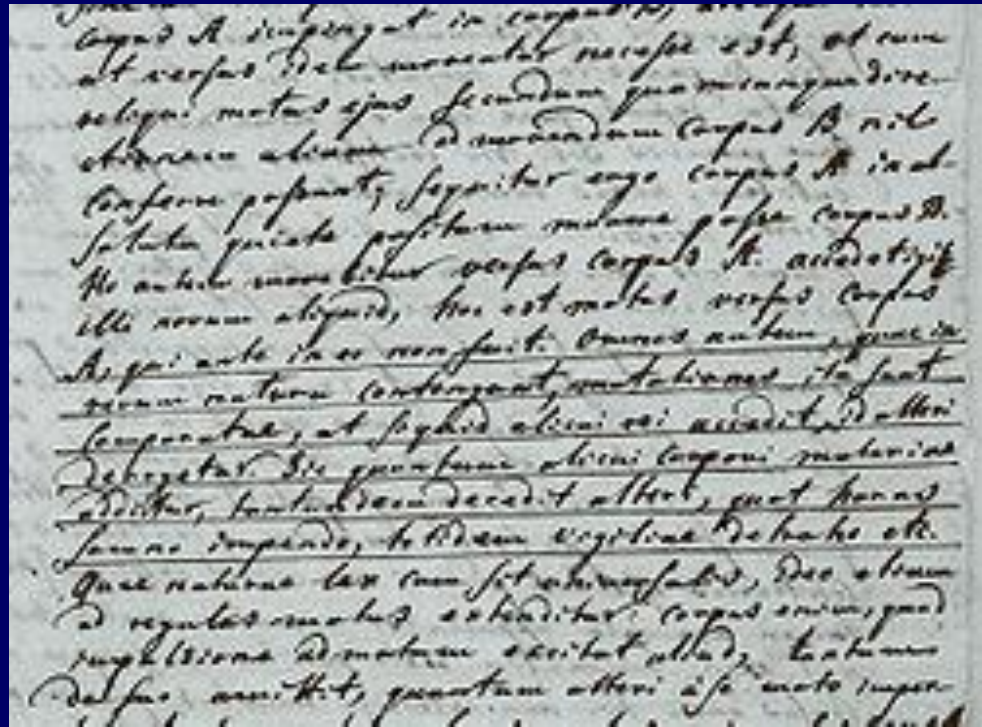 corpus A impingat in corpus B,
ut versus idem moveatur necesse est, et cum
reliqui motus ejus secundum quamcunque dire-
ctionem aliam ad movendum corpus B nil
conferre possunt; sequitur ergo corpus A in ab-
soluta quiete positum movere posse corpus B.
Hoc autem movebitur versus corpus A. accedet igit
illi novum aliquid, hoc est motus versus corpus
A, qui ante in eo non fuit. Omnes autem, quae in
rerum natura contingunt, mutationes ita sunt
comparatae, ut si quid alicui rei accedit, id alteri
derogetur. Sic quantum alicui corpori materiae
additur, tantundem decedit alteri, quot horas
somno impendo, totidem vigiliae detraho etc.
Quae naturae lex cum sit universalis, ideo etiam
ad regulas motus extenditur: corpus enim, quod
impulsione ad motum excitat aliud, tantum
de suo amittit, quantum alteri a se moto imper-